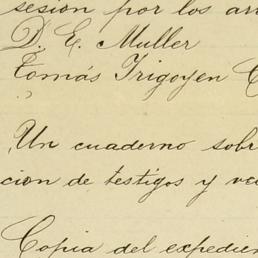 sesion por los
D. E. Muller
Tomás Irigoyen
Un cuaderno sobr
cion de testigos y
Copia del expedien